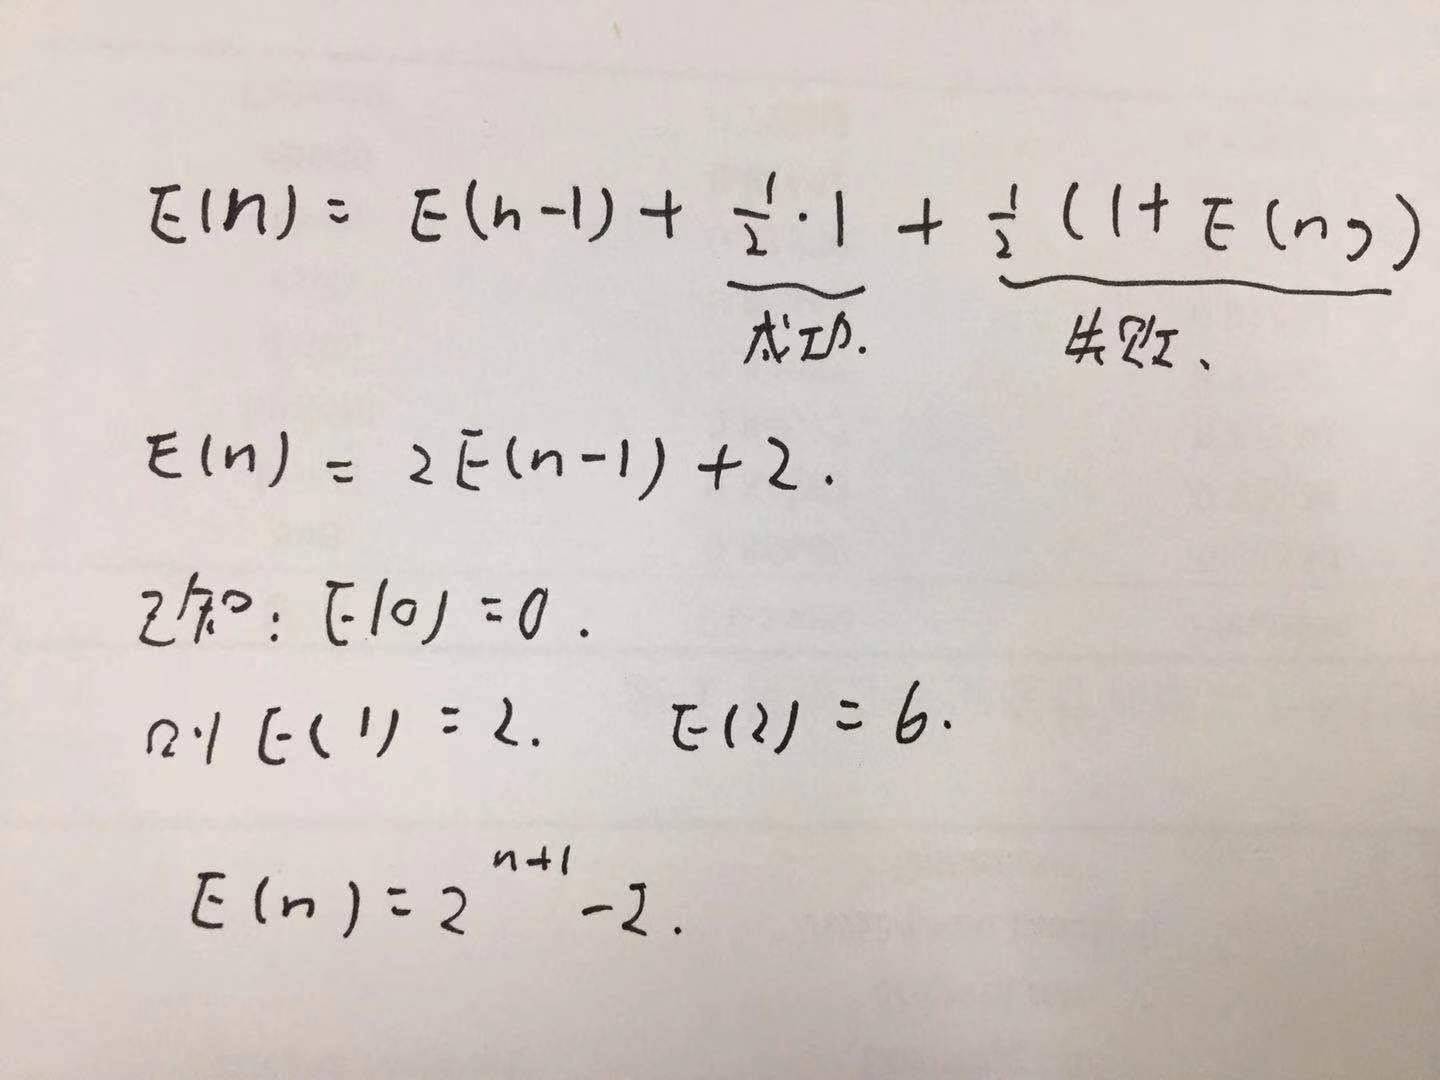 E(n) = E(n-1) + 1/2 · 1 + 1/2 (1 + E(n))
成功. 失败、
E(n) = 2E(n-1) + 2.
已知: E(0) = 0.
则 E(1) = 2. E(2) = 6.
E(n) = 2^{n+1} - 2.